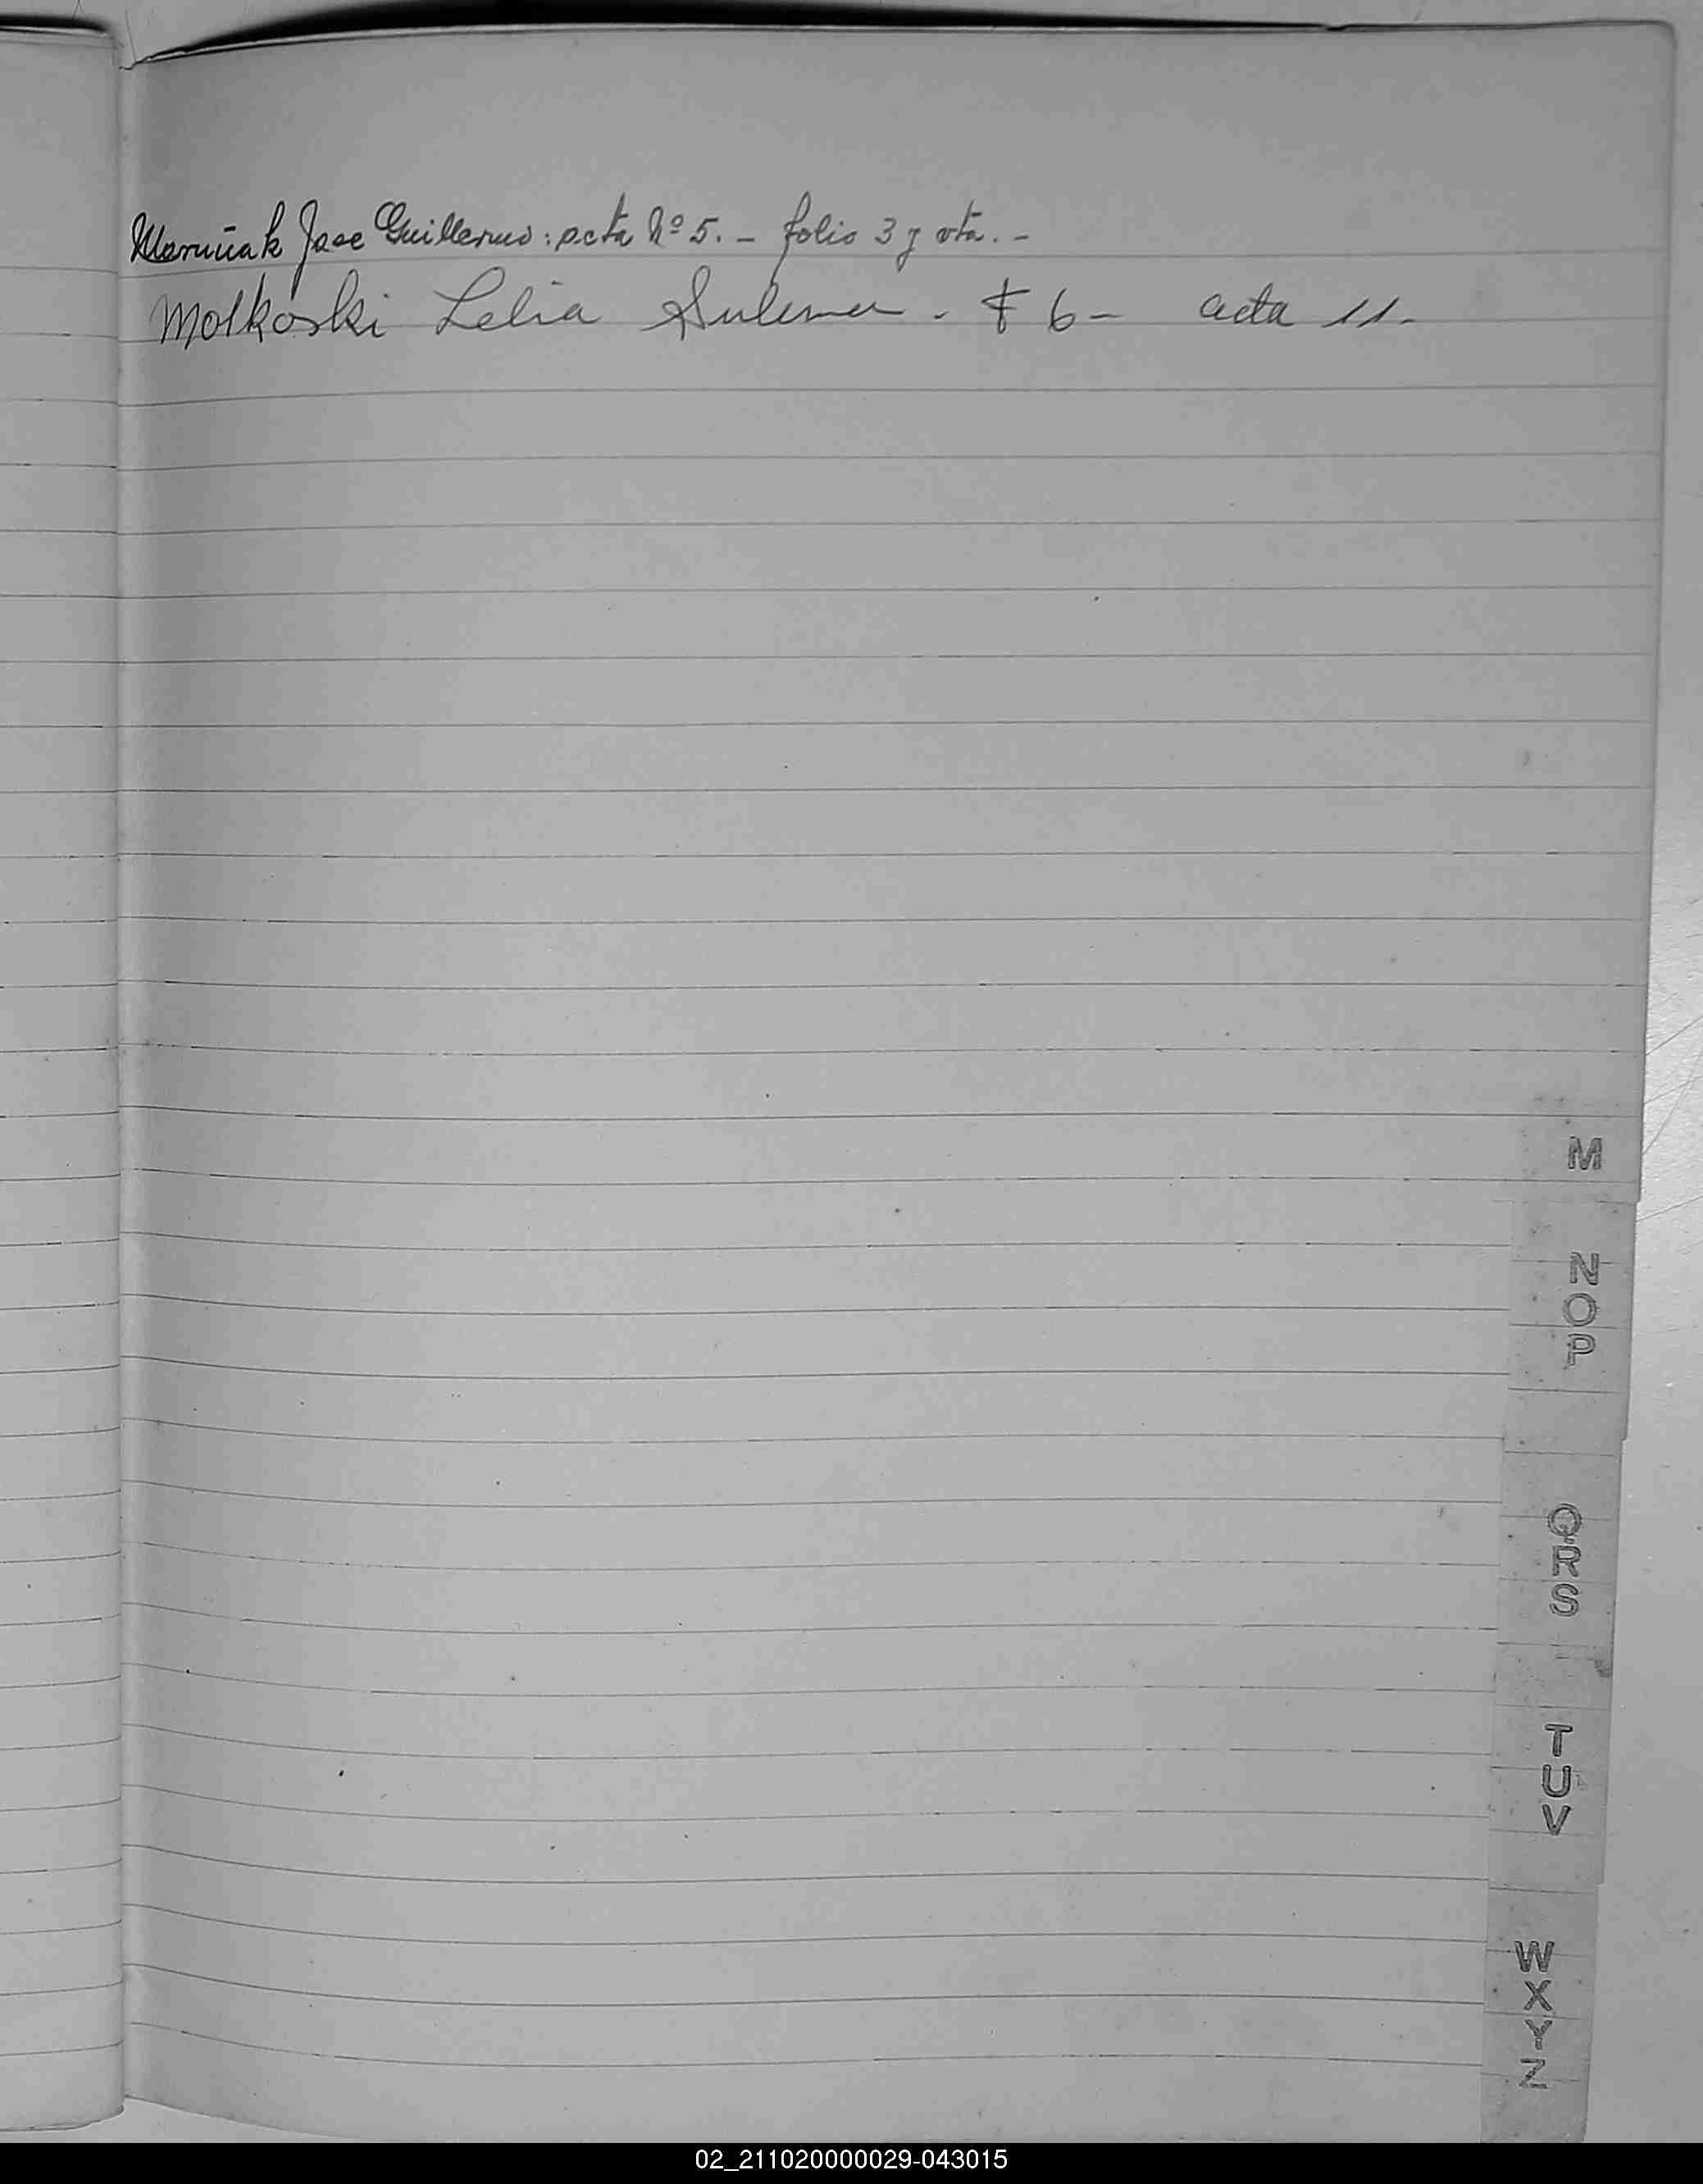 Maruñak Jose Guillermo: acta Nº 5. - folio 3 y vta. -
Molkoski Lelia Sulema - F 6 - acta 11.
M
N
O
P
Q
R
S
T
U
V
W
X
Y
Z
02_211020000029-043015